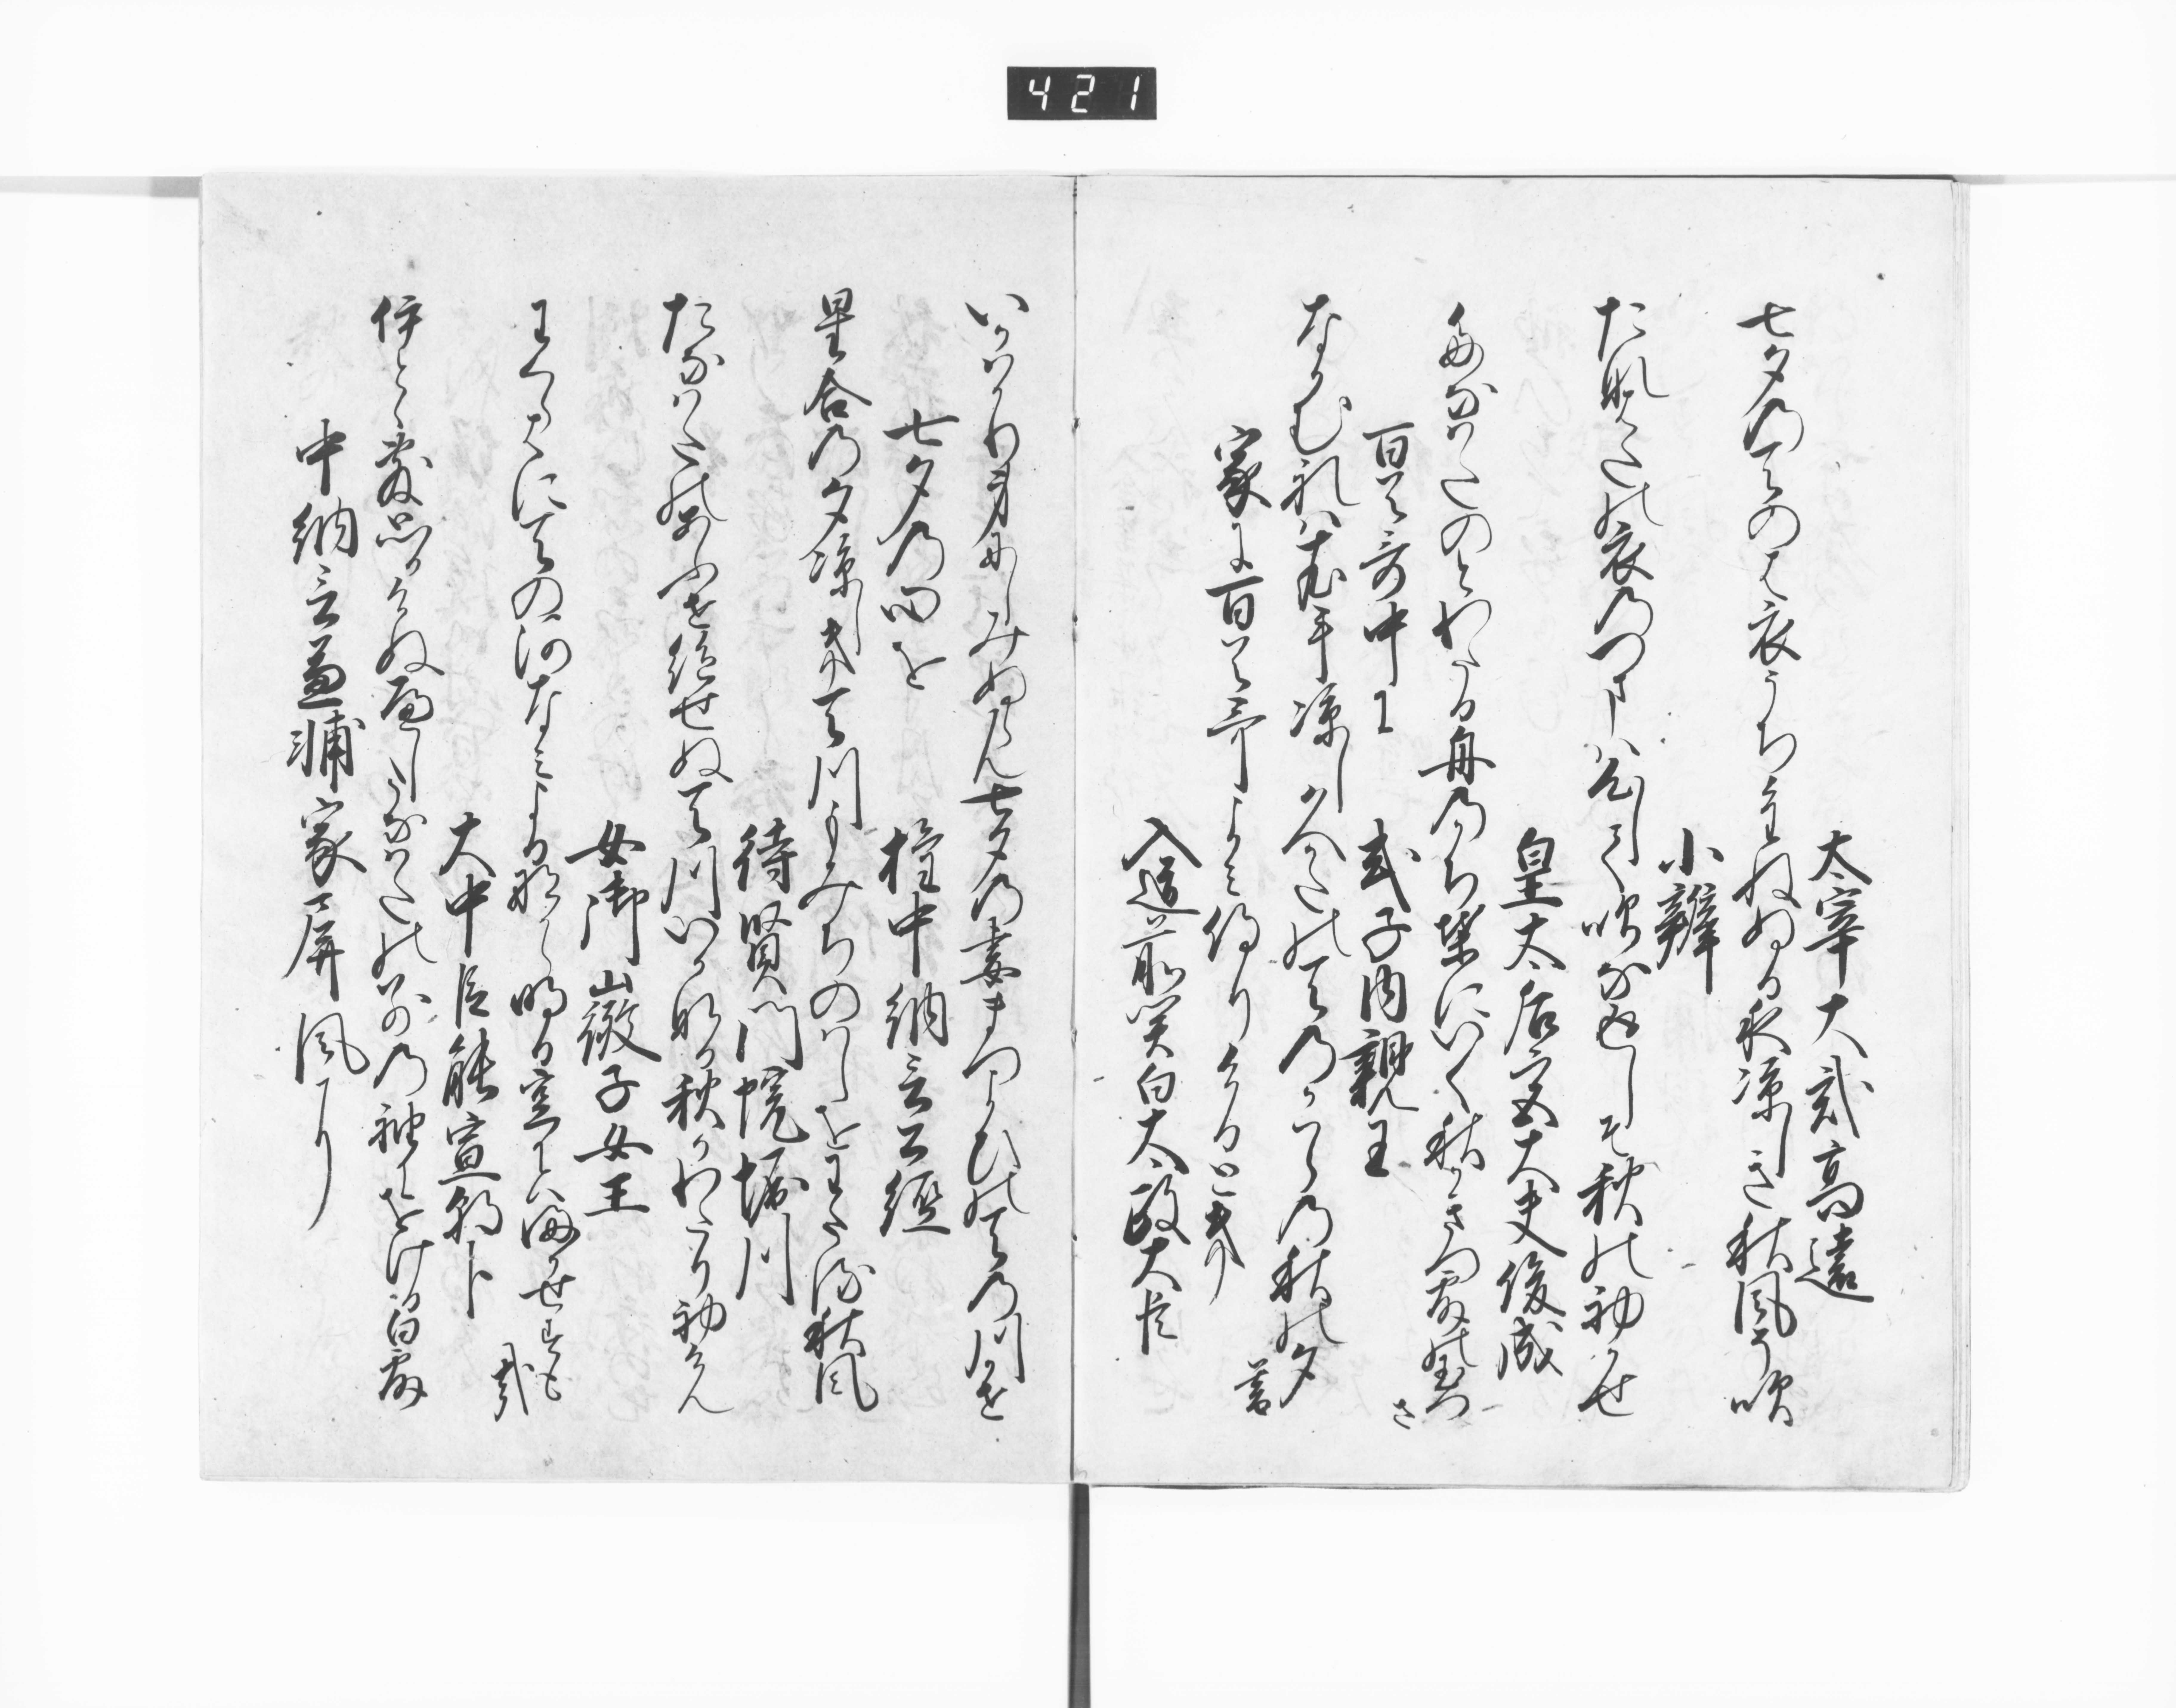 421
太宰大貳高遠
七夕のあまのは衣うちかさねぬる夜涼しき秋風そ吹
小辨
たなはたの衣のつまは心して吹なかへしそ秋の初かせ
皇太后宮大夫俊成
たなはたのとわたる舟のかち葉にいく秋かきつ露の玉つさ
百首哥中に　式子内親王
なかむれは衣手涼し久かたのあまのかはらの秋の夕暮
家に百首哥よみ侍りける時
入道前関白太政大臣
いかはかり身にしみぬらん七夕の妻まつよひのあまの川かせ
七夕の心を　権中納言公經
星合の夕涼しき天川もみちのはしをわたる秋風
待賢門院堀川
たなはたのあふせ絶せぬ天川いかなる秋かわたり初けん
女御徽子女王
わくらはにあまの河なみよるなから明る空には満かせすも哉
大中臣能宣朝臣
いとゝ露思ひけぬへしたなはたの別の袖にをける白露
中納言兼輔家屏風に